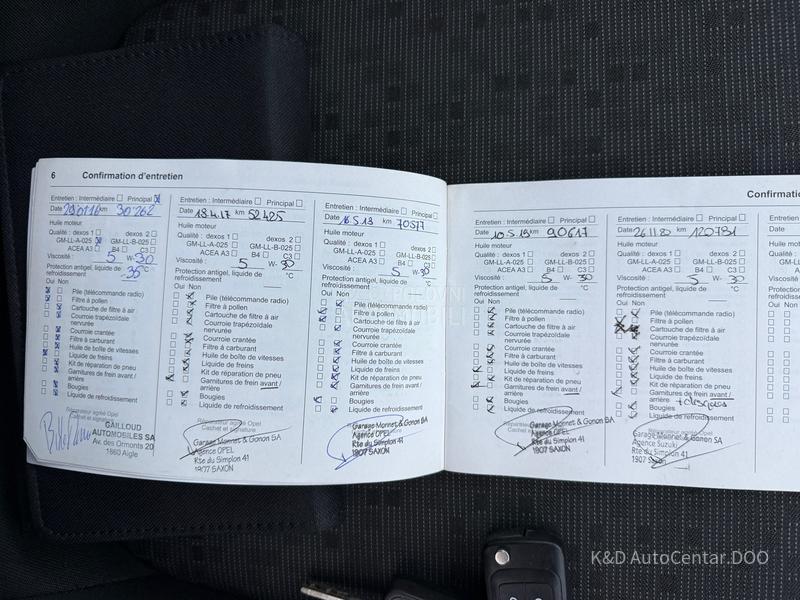 6 Confirmation d'entretien
Entretien : Intermédiaire Principal
Date 29 01 16 km 30'262
Huile moteur
Qualité : dexos 1 dexos 2
GM-LL-A-025 GM-LL-B-025
ACEA A3 B4 C3
Viscosité : 5 W- 30
Protection antigel, liquide de refroidissement -35 °C
Oui Non
Pile (télécommande radio)
Filtre à pollen
Cartouche de filtre à air
Courroie trapézoïdale
nervurée
Courroie crantée
Filtre à carburant
Huile de boîte de vitesses
Liquide de freins
Kit de réparation de pneu
Garnitures de frein avant /
arrière
Bougies
Liquide de refroidissement
Réparateur agréé Opel
Cachet et signature
GAILLOUD
AUTOMOBILES SA
Av. des Ormonts 20
1860 Aigle
Entretien : Intermédiaire Principal
Date 18.4.17 km 52425
Huile moteur
Qualité : dexos 1 dexos 2
GM-LL-A-025 GM-LL-B-025
ACEA A3 B4 C3
Viscosité : 5 W- 30
Protection antigel, liquide de
refroidissement °C
Oui Non
Pile (télécommande radio)
Filtre à pollen
Cartouche de filtre à air
Courroie trapézoïdale
nervurée
Courroie crantée
Filtre à carburant
Huile de boîte de vitesses
Liquide de freins
Kit de réparation de pneu
Garnitures de frein avant /
arrière
Bougies
Liquide de refroidissement
Réparateur agréé Opel
Cachet et signature
Garage Monnet & Gonon SA
Agence OPEL
Rte du Simplon 41
1907 SAXON
Entretien : Intermédiaire Principal
Date 16.5.18 km 70517
Huile moteur
Qualité : dexos 1 dexos 2
GM-LL-A-025 GM-LL-B-025
ACEA A3 B4 C3
Viscosité : 5 W- 30
Protection antigel, liquide de
refroidissement °C
Oui Non
Pile (télécommande radio)
Filtre à pollen
Cartouche de filtre à air
Courroie trapézoïdale
nervurée
Courroie crantée
Filtre à carburant
Huile de boîte de vitesses
Liquide de freins
Kit de réparation de pneu
Garnitures de frein avant /
arrière
Bougies
Liquide de refroidissement
Garage Monnet & Gonon SA
Agence OPEL
Rte du Simplon 41
1907 SAXON
Confirmatio
Entretien : Intermédiaire Principal
Date 10.5.19 km 90617
Huile moteur
Qualité : dexos 1 dexos 2
GM-LL-A-025 GM-LL-B-025
ACEA A3 B4 C3
Viscosité : 5 W- 30
Protection antigel, liquide de
refroidissement °C
Oui Non
Pile (télécommande radio)
Filtre à pollen
Cartouche de filtre à air
Courroie trapézoïdale
nervurée
Courroie crantée
Filtre à carburant
Huile de boîte de vitesses
Liquide de freins
Kit de réparation de pneu
Garnitures de frein avant /
arrière
Bougies
Liquide de refroidissement
Garage Monnet & Gonon SA
Agence OPEL
Rte du Simplon 41
1907 SAXON
Entretien : Intermédiaire Principal
Date 26 11 20 km 120781
Huile moteur
Qualité : dexos 1 dexos 2
GM-LL-A-025 GM-LL-B-025
ACEA A3 B4 C3
Viscosité : 5 W- 30
Protection antigel, liquide de
refroidissement °C
Oui Non
Pile (télécommande radio)
Filtre à pollen
Cartouche de filtre à air
Courroie trapézoïdale
nervurée
Courroie crantée
Filtre à carburant
Huile de boîte de vitesses
Liquide de freins
Kit de réparation de pneu
Garnitures de frein avant /
arrière + disques
Bougies
Liquide de refroidissement
Garage Monnet & Gonon SA
Agence Suzuki
Rte du Simplon 41
1907 Saxon
Entretien
Date
Huile mote
Qualité :
GM-LL
Viscosité
Protection
refroidisse
Oui Non
K&D AutoCentar.DOO